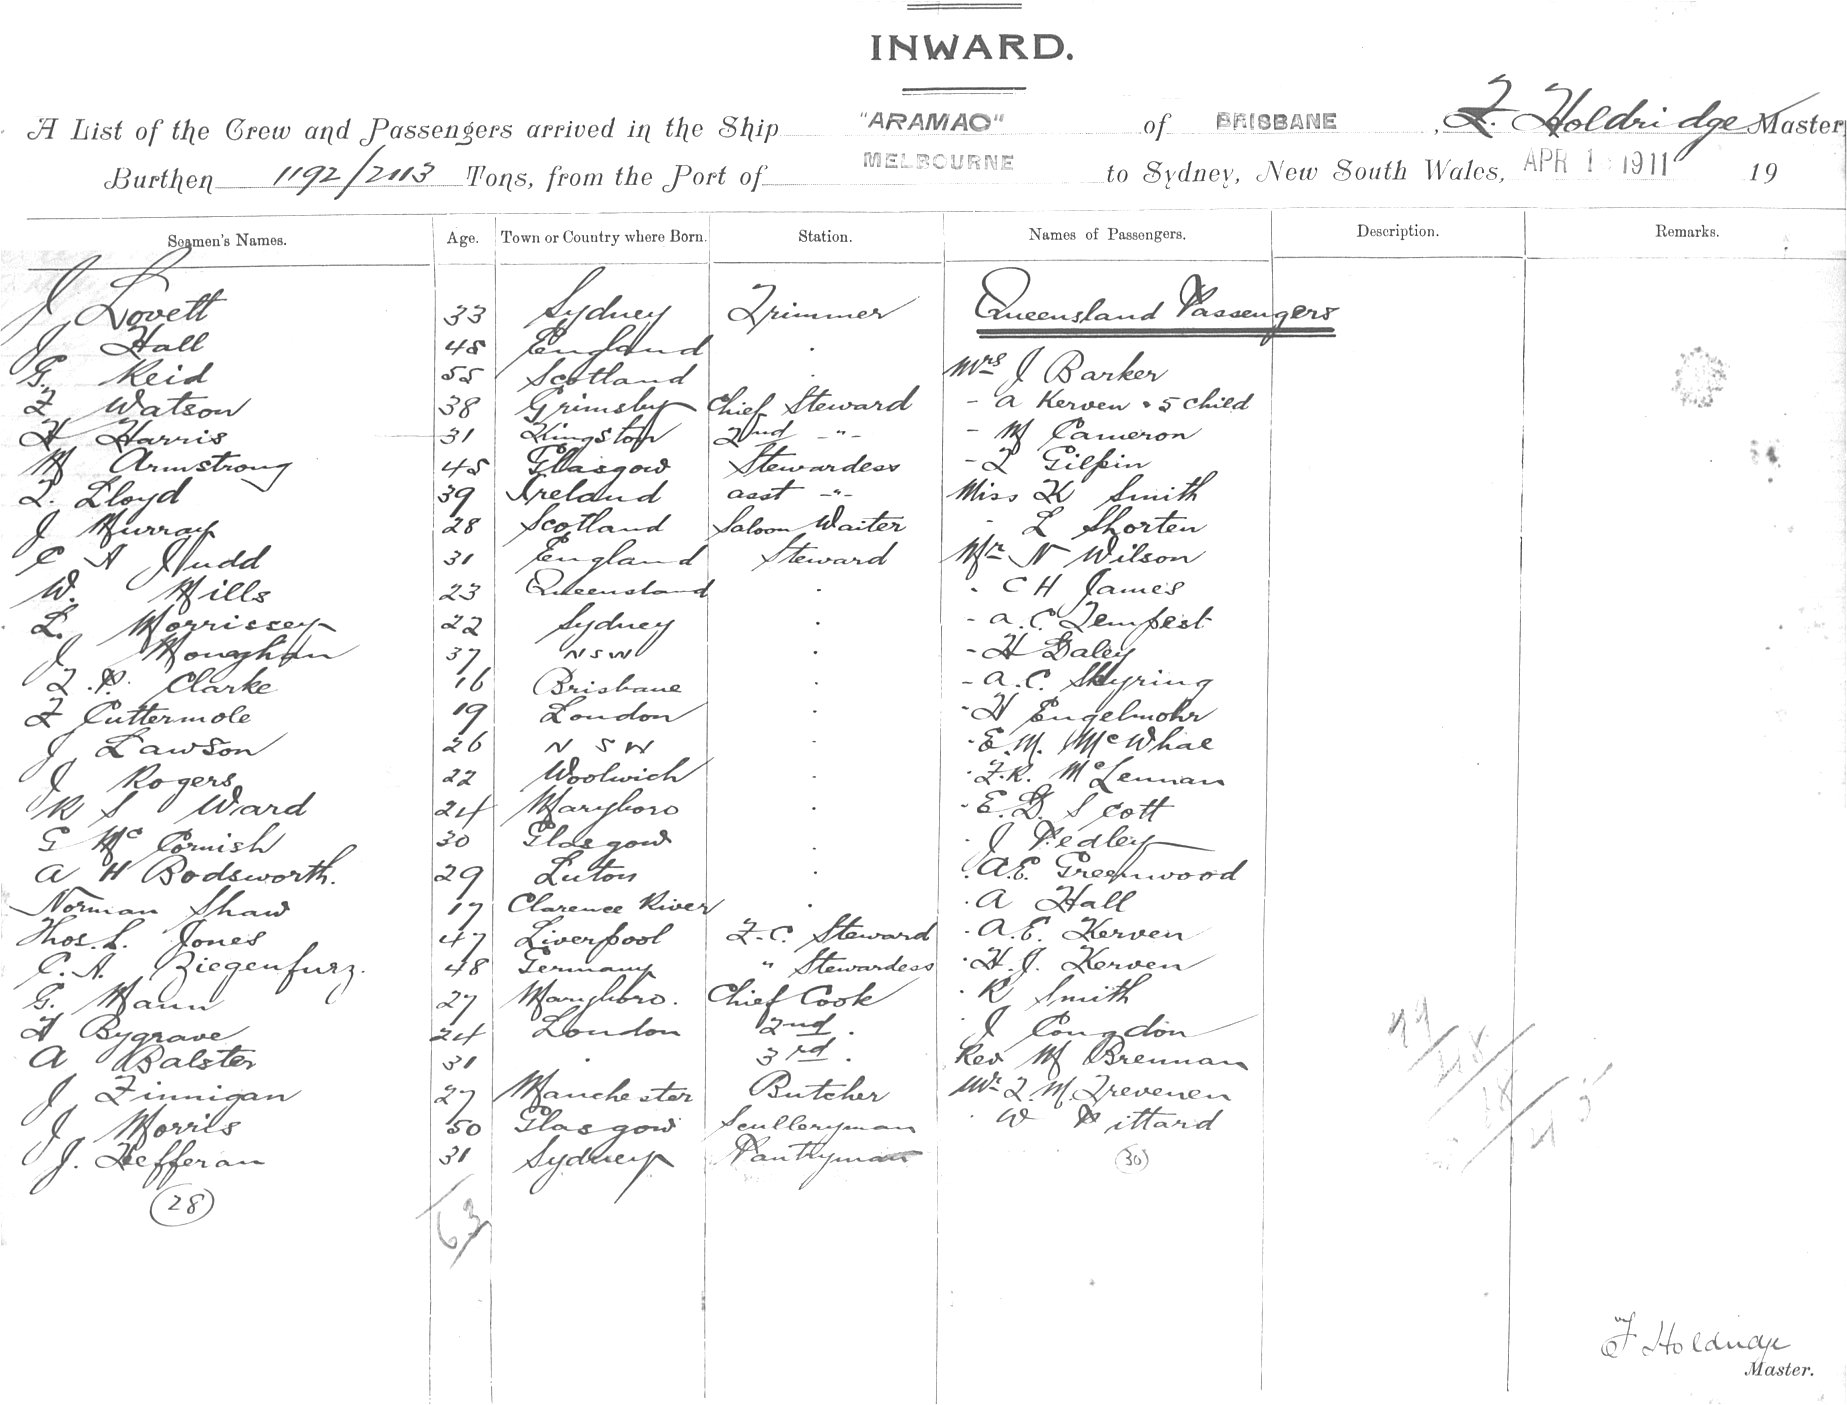 INWARD.
A List of the Crew and Passengers arrived in the Ship "ARAMAC" of BRISBANE, F. Holdridge Master
Burthen 1192/2113 Tons, from the Port of MELBOURNE to Sydney, New South Wales, APR 1 1911 19
Seamen's Names. Age. Town or Country where Born. Station. Names of Passengers. Description. Remarks.
J Lovett 33 Sydney Trimmer Queensland Passengers
J Hall 45 England .
G. Reid 55 Scotland . Mrs J Barker
F Watson 38 Grimsby Chief Steward - A Kerven & 5 child
H Harris 31 Kingston 2nd -"- - M Cameron
M Armstrong 45 Glasgow Stewardess - F Gilpin
F. Lloyd 39 Ireland asst -"- Miss K Smith
J Murray 28 Scotland Saloon Waiter L Shorten
C A Judd 31 England Steward Mr N Wilson
W. Mills 23 Queensland . . C H James
L. Morrissey 22 Sydney . - A. C. Tempest
J Monaghan 37 NSW . - H Daley
F. P. Clarke 16 Brisbane . - A. C. Skyring
F Cuttermole 19 London . - H Engelmohr
J Lawson 26 N S W . - E. M. McWhae
J Rogers 22 Woolwich . - F. R. McLennan
R S Ward 24 Maryboro . - E. D. Scott
G McCornish 30 Glasgow . . J Pedley
A H Bodsworth. 29 Luton . . A. E. Greenwood
Norman Shaw 17 Clarence River . . A Hall
Thos. L. Jones 47 Liverpool F. C. Steward . A. E. Kerven
C. A. Ziegenfurz. 48 Germany " Stewardess . H. J. Kerven
G. Mann 27 Maryboro. Chief Cook . R Smith
H Bygrave 24 London 2nd . . J Congdon
A Balster 31 . 3rd . Rev M Brennan
J Finnigan 27 Manchester Butcher Mr F. M Trevenen
J Morris 50 Glasgow Sculleryman . W Pittard
J. Hefferan 31 Sydney Pantryman 30
28
63
F Holdridge
Master.